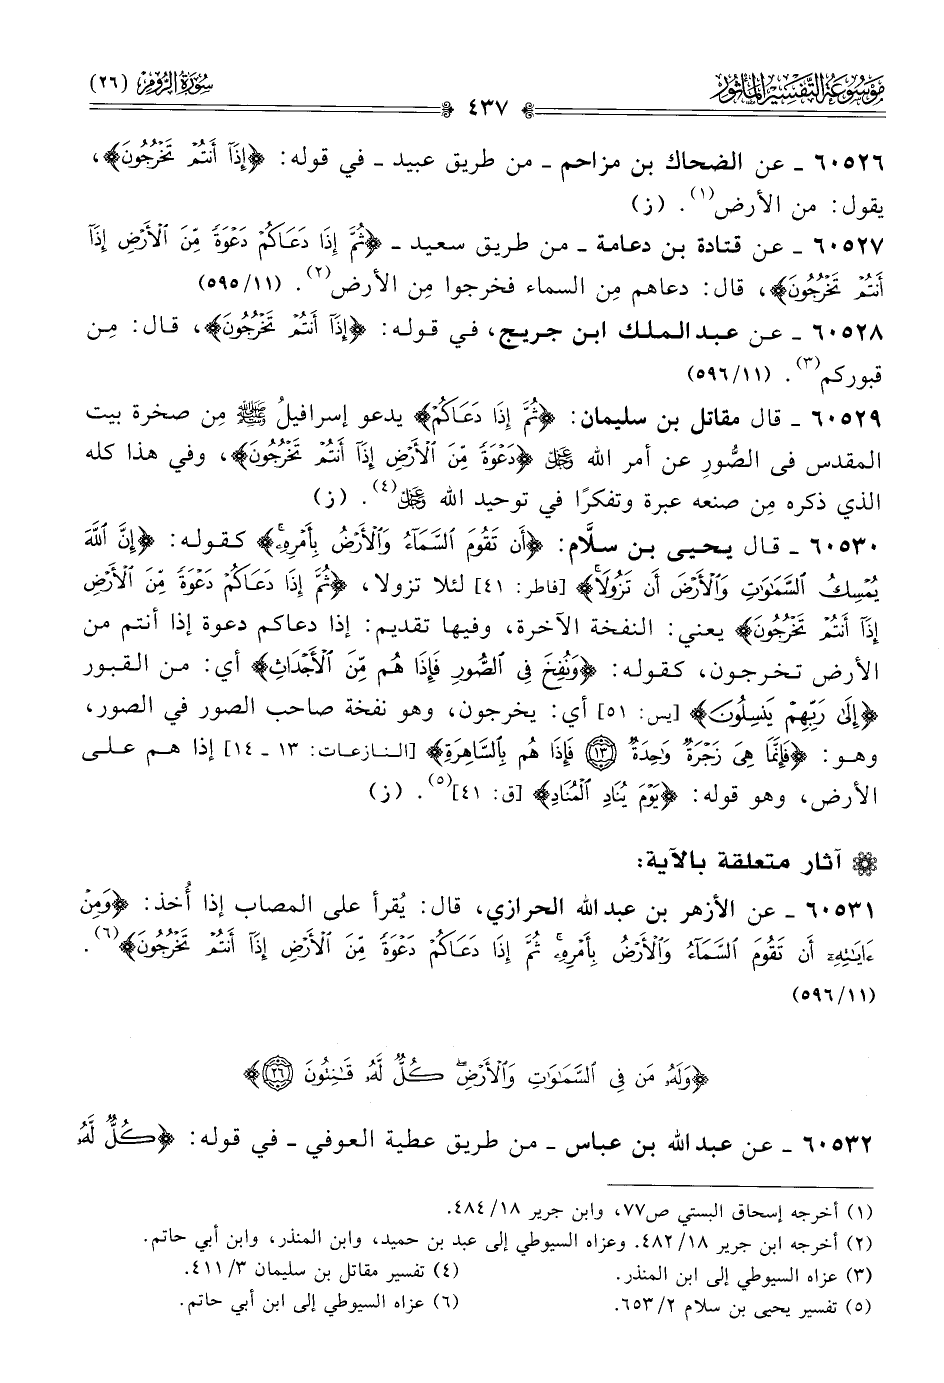 مَوْسُوعَةُ التَّفْسِيْرِ المَأْثُورِ
٤٣٧
سُورَةُ الرُّومِ (٢٦)
٦٠٥٢٦ ـ عن الضحاك بن مزاحم ـ من طريق عبيد ـ في قوله: ﴿إِذَآ أَنتُمْ تَخْرُجُونَ﴾،
يقول: من الأرض(١). (ز)
٦٠٥٢٧ ـ عن قتادة بن دعامة ـ من طريق سعيد ـ ﴿ثُمَّ إِذَا دَعَاكُمْ دَعْوَةً مِّنَ ٱلْأَرْضِ إِذَآ
أَنتُمْ تَخْرُجُونَ﴾، قال: دعاهم مِن السماء فخرجوا مِن الأرض(٢). (٥٩٥/١١)
٦٠٥٢٨ ـ عن عبدالملك ابن جريج، في قوله: ﴿إِذَآ أَنتُمْ تَخْرُجُونَ﴾، قال: مِن
قبوركم(٣). (٥٩٦/١١)
٦٠٥٢٩ ـ قال مقاتل بن سليمان: ﴿ثُمَّ إِذَا دَعَاكُمْ﴾ يدعو إسرافيلُ ﷺ مِن صخرة بيت
المقدس في الصُّورِ عن أمر الله ﷿ ﴿دَعْوَةً مِّنَ ٱلْأَرْضِ إِذَآ أَنتُمْ تَخْرُجُونَ﴾، وفي هذا كله
الذي ذكره مِن صنعه عبرة وتفكرًا في توحيد الله ﷿(٤). (ز)
٦٠٥٣٠ ـ قال يحيى بن سلَّام: ﴿أَن تَقُومَ ٱلسَّمَآءُ وَٱلْأَرْضُ بِأَمْرِهِۦ﴾ كقوله: ﴿إِنَّ ٱللَّهَ
يُمْسِكُ ٱلسَّمَٰوَٰتِ وَٱلْأَرْضَ أَن تَزُولَا﴾ [فاطر: ٤١] لئلا تزولا، ﴿ثُمَّ إِذَا دَعَاكُمْ دَعْوَةً مِّنَ ٱلْأَرْضِ
إِذَآ أَنتُمْ تَخْرُجُونَ﴾ يعني: النفخة الآخرة، وفيها تقديم: إذا دعاكم دعوة إذا أنتم من
الأرض تخرجون، كقوله: ﴿وَنُفِخَ فِى ٱلصُّورِ فَإِذَا هُم مِّنَ ٱلْأَجْدَاثِ﴾ أي: من القبور
﴿إِلَىٰ رَبِّهِمْ يَنسِلُونَ﴾ [يس: ٥١] أي: يخرجون، وهو نفخة صاحب الصور في الصور،
وهو: ﴿فَإِنَّمَا هِىَ زَجْرَةٌ وَٰحِدَةٌ (١٣) فَإِذَا هُم بِٱلسَّاهِرَةِ﴾ [النازعات: ١٣ ـ ١٤] إذا هم على
الأرض، وهو قوله: ﴿يَوْمَ يُنَادِ ٱلْمُنَادِ﴾ [ق: ٤١](٥). (ز)
آثار متعلقة بالآية:
٦٠٥٣١ ـ عن الأزهر بن عبدالله الحرازي، قال: يُقرأ على المصاب إذا أُخذ: ﴿وَمِنْ
ءَايَٰتِهِۦٓ أَن تَقُومَ ٱلسَّمَآءُ وَٱلْأَرْضُ بِأَمْرِهِۦ ثُمَّ إِذَا دَعَاكُمْ دَعْوَةً مِّنَ ٱلْأَرْضِ إِذَآ أَنتُمْ تَخْرُجُونَ﴾(٦).
(٥٩٦/١١)
﴿وَلَهُۥ مَن فِى ٱلسَّمَٰوَٰتِ وَٱلْأَرْضِ ۖ كُلٌّ لَّهُۥ قَٰنِتُونَ (٢٦)﴾
٦٠٥٣٢ ـ عن عبدالله بن عباس ـ من طريق عطية العوفي ـ في قوله: ﴿كُلٌّ لَّهُۥ
(١) أخرجه إسحاق البستي ص٧٧، وابن جرير ٤٨٤/١٨.
(٢) أخرجه ابن جرير ٤٨٢/١٨. وعزاه السيوطي إلى عبد بن حميد، وابن المنذر، وابن أبي حاتم.
(٣) عزاه السيوطي إلى ابن المنذر. (٤) تفسير مقاتل بن سليمان ٤١١/٣.
(٥) تفسير يحيى بن سلام ٦٥٣/٢. (٦) عزاه السيوطي إلى ابن أبي حاتم.